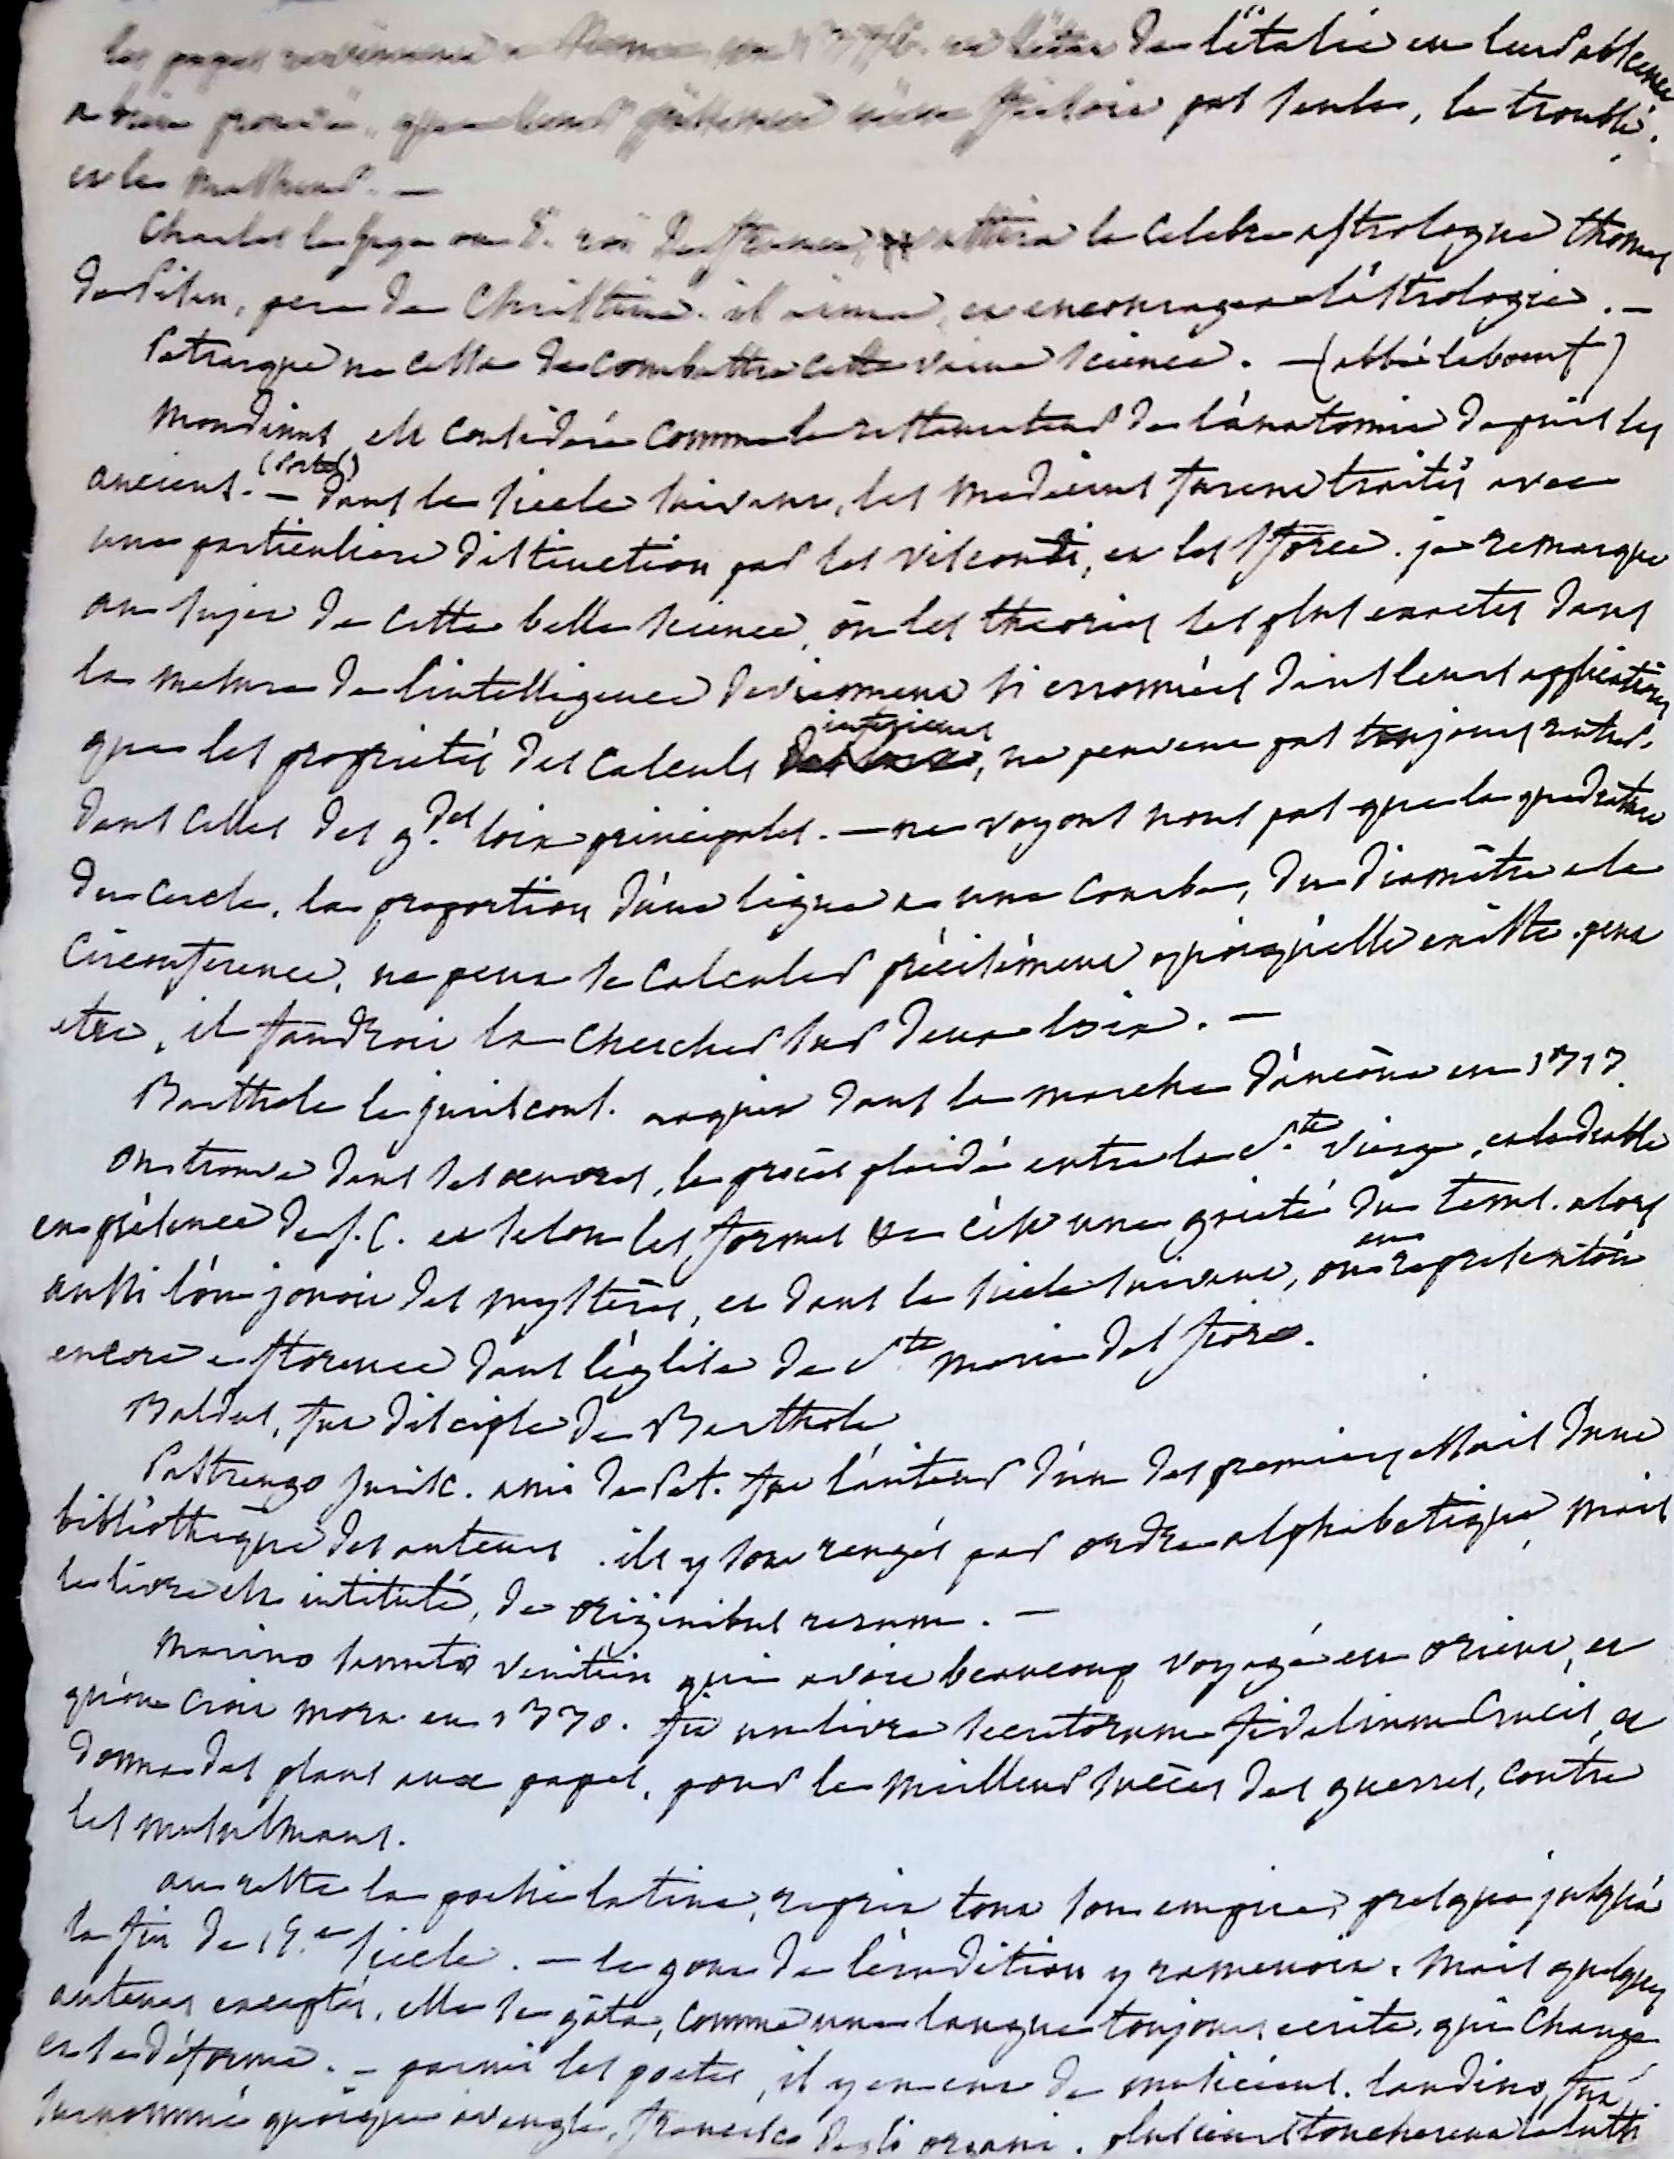 les papes revinrent a Rome en 1376. et l'état de l'italie en leur absence
a bien prouvé, que leur puissance n'en faisoit pas seule, le trouble.
et le malheur. —
Charles le sage ou 5. roi de france, attira le celebre astrologue thomas
de Pisan, pere de Christine. il aima, et encouragea l'astrologie. —
Petrarque ne cessa de combattre cette vaine science. — (abbé leboeuf)
Mondinus est consideré comme le restaurateur de l'anatomie depuis les
anciens. (Portal) — dans le siecle suivant, les medecins furent traités avec
une particuliere distinction par les visconti, et les sforce. je remarque
au sujet de cette belle science, où les theories les plus exactes dans
la mesure de l'intelligence deviennent si erronnées dans leurs applications
que les proprietés des calculs inferieurs, ne peuvent pas toujours entrer
dans celles des g.des loix principales. — ne voyons nous pas que la quadrature
du cercle, la proportion d'une ligne a une courbe, du diamêtre a la
circonference, ne peut se calculer précisément quoiqu'elle existe. peut
etre, il faudroit la chercher sur deux loix. —
Barthole le juriscons. naquit dans la marche d'ancône en 1313.
on trouve dans ses oeuvres, le procès plaidé entre la S.te vierge, et le diable
en présence de J. C. et selon les formes c'est une gaieté du tems. alors
aussi l'on jouoit des mystères, et dans le siecle suivant, on en representoit
encore a florence dans l'église de S.te Maria del fiore.
Baldus, fut disciple de Barthole
Pastrengo jurisc. ami de Pet. fut l'auteur d'un des premiers essais d'une
bibliothèque des auteurs. ils y sont rangés par ordre alphabetique, mais
le livre est intitulé, de originibus rerum. —
Marino sanuto venitien qui avoit beaucoup voyagé en orient, et
qu'on croit mort en 1330. fit un livre secretorum fidelium Crucis, et
donna des plans aux papes, pour le meilleur succès des guerres, contre
les musulmans.
au reste la poesie latine, reprit tout son empire, presque jusqu'à
la fin de 15.e siecle. — le gout de l'érudition y ramenoit. Mais quelques
auteurs exceptés, elle se gâta, comme une langue toujours ecrite, qui change
et se déforme. — parmi les poetes, il y en eut de musiciens. landino, fut
surnommé quoique aveugle, francesco degli organi. plusieurs toucherent le luth